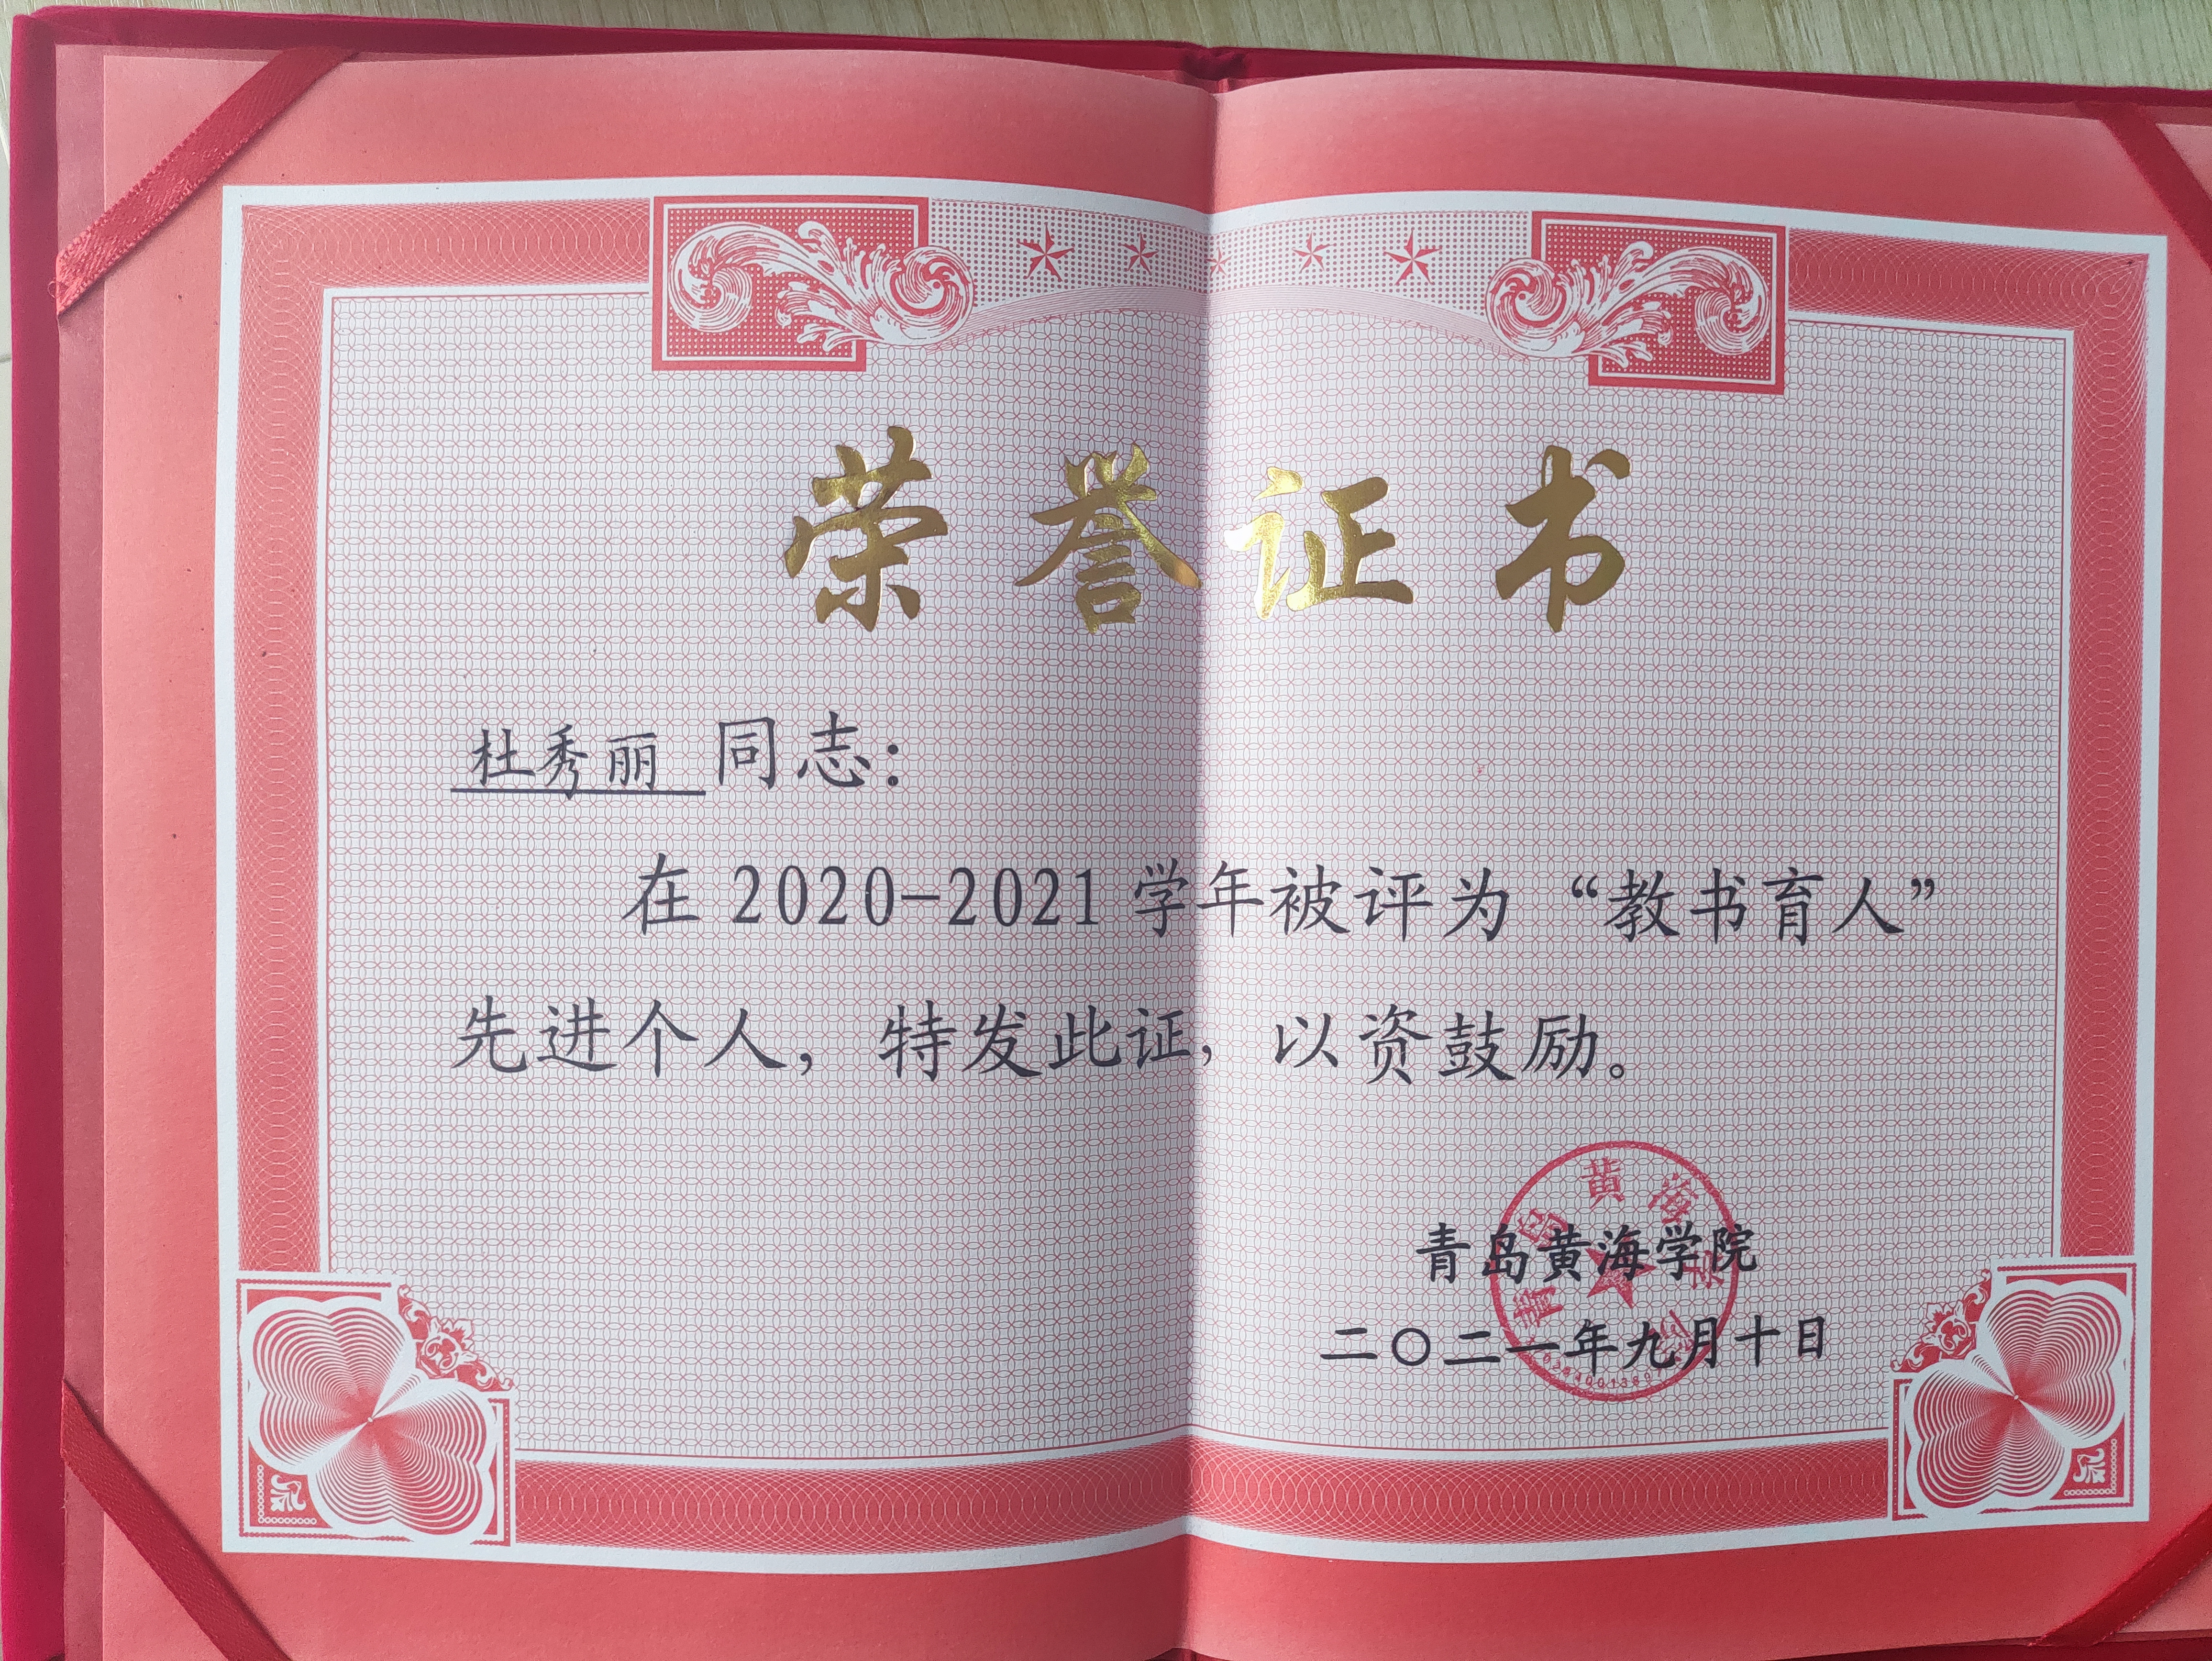 荣誉证书
杜秀丽 同志：
在 2020-2021 学年被评为 “教书育人”
先进个人，特发此证，以资鼓励。
青岛黄海学院
二〇二一年九月十日
青岛黄海学院